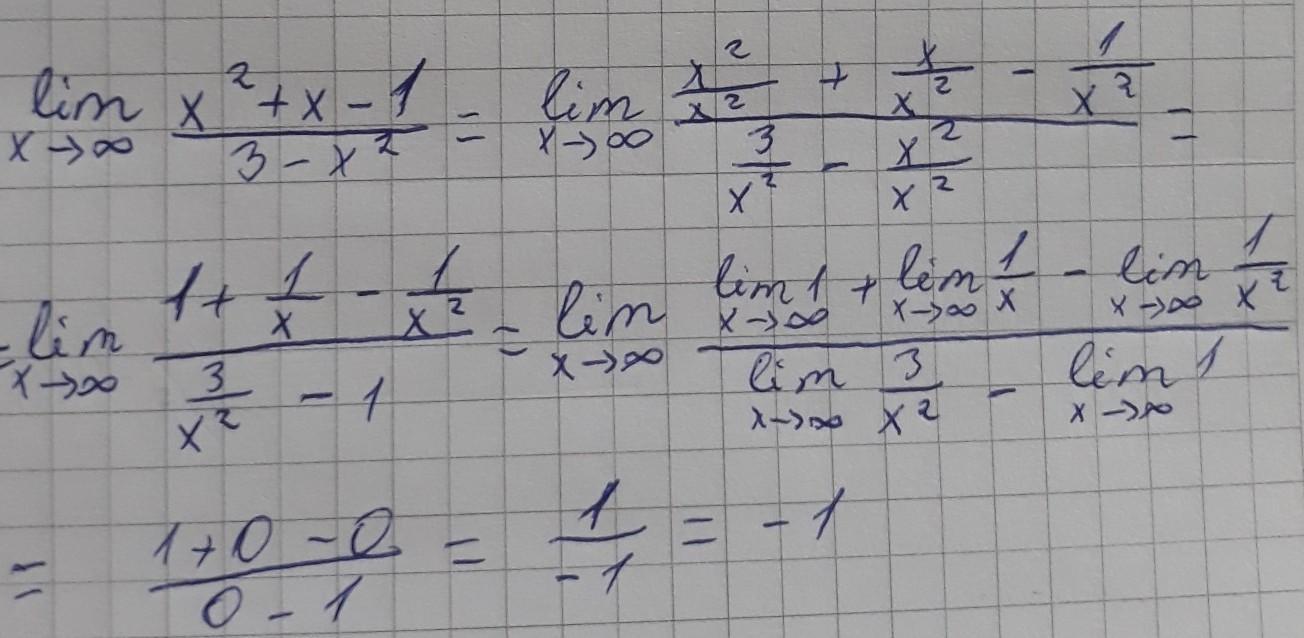 lim x→∞ (x² + x - 1)/(3 - x²) = lim x→∞ (x²/x² + x/x² - 1/x²)/(3/x² - x²/x²) =
= lim x→∞ (1 + 1/x - 1/x²)/(3/x² - 1) = lim x→∞ (lim x→∞ 1 + lim x→∞ 1/x - lim x→∞ 1/x²)/(lim x→∞ 3/x² - lim x→∞ 1)
= (1 + 0 - 0)/(0 - 1) = 1/-1 = -1